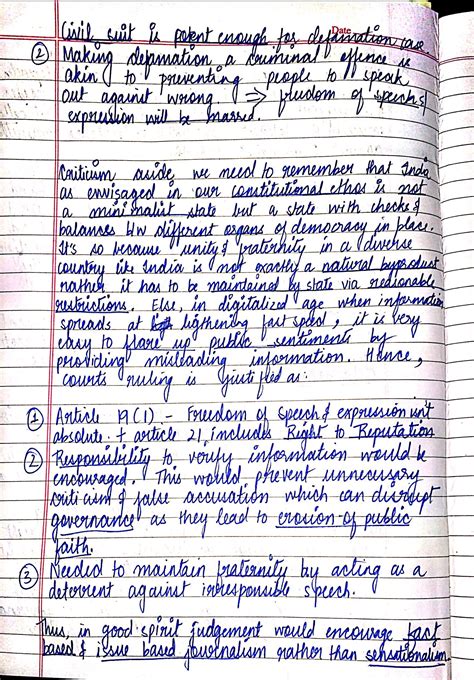 Date
Civil suit is potent enough for defamation case
② Making defamation a criminal offence is
akin to preventing people to speak
out against wrong => freedom of speech &
expression will be marred.
Criticism aside, we need to remember that India
as envisaged in our constitutional ethos is not
a minimalist state but a state with checks &
balances b/w different organs of democracy in place.
It's so because unity & fraternity in a diverse
country like India is not exactly a natural byproduct
rather it has to be maintained by state via reasonable
restrictions. Else, in digitalized age when information
spreads at lightening fast speed, it is very
easy to flare up public sentiments by
providing misleading information. Hence,
courts ruling is justified as:
① Article 19(1) - Freedom of speech & expression isn't
absolute. + article 21 includes Right to Reputation
② Responsibility to verify information would be
encouraged. This would prevent unnecessary
criticism & false accusation which can disrupt
governance as they lead to erosion of public
faith.
③ Needed to maintain fraternity by acting as a
deterrent against irresponsible speech.
Thus, in good spirit judgement would encourage fact
based & issue based journalism rather than sensationalism.